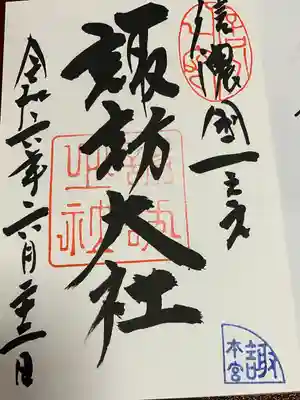 信濃國一之宮
諏訪大社
令和六年六月二十二日
諏
本宮